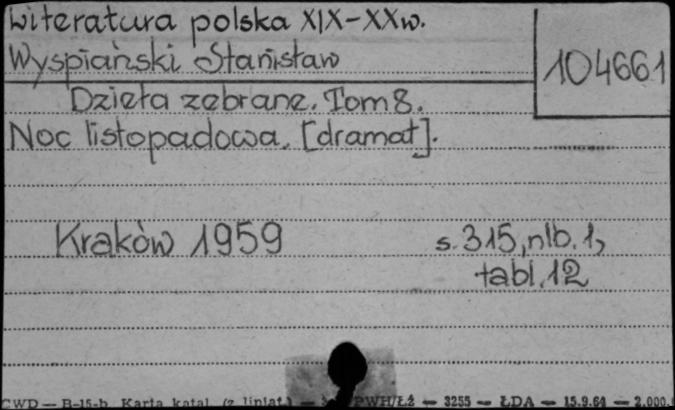 Literatura polska XIX-XXw.
Wyspiański Stanisław
104661
Dzieła zebrane. Tom 8.
Noc listopadowa. [dramat].
Kraków 1959
s. 315, nlb. 1,
tabl. 12
CWD — B-15-b Karta katal. (z liniat.) — PWH/Łż — 3255 — ŁDA — 15.9.61 — 2.000.